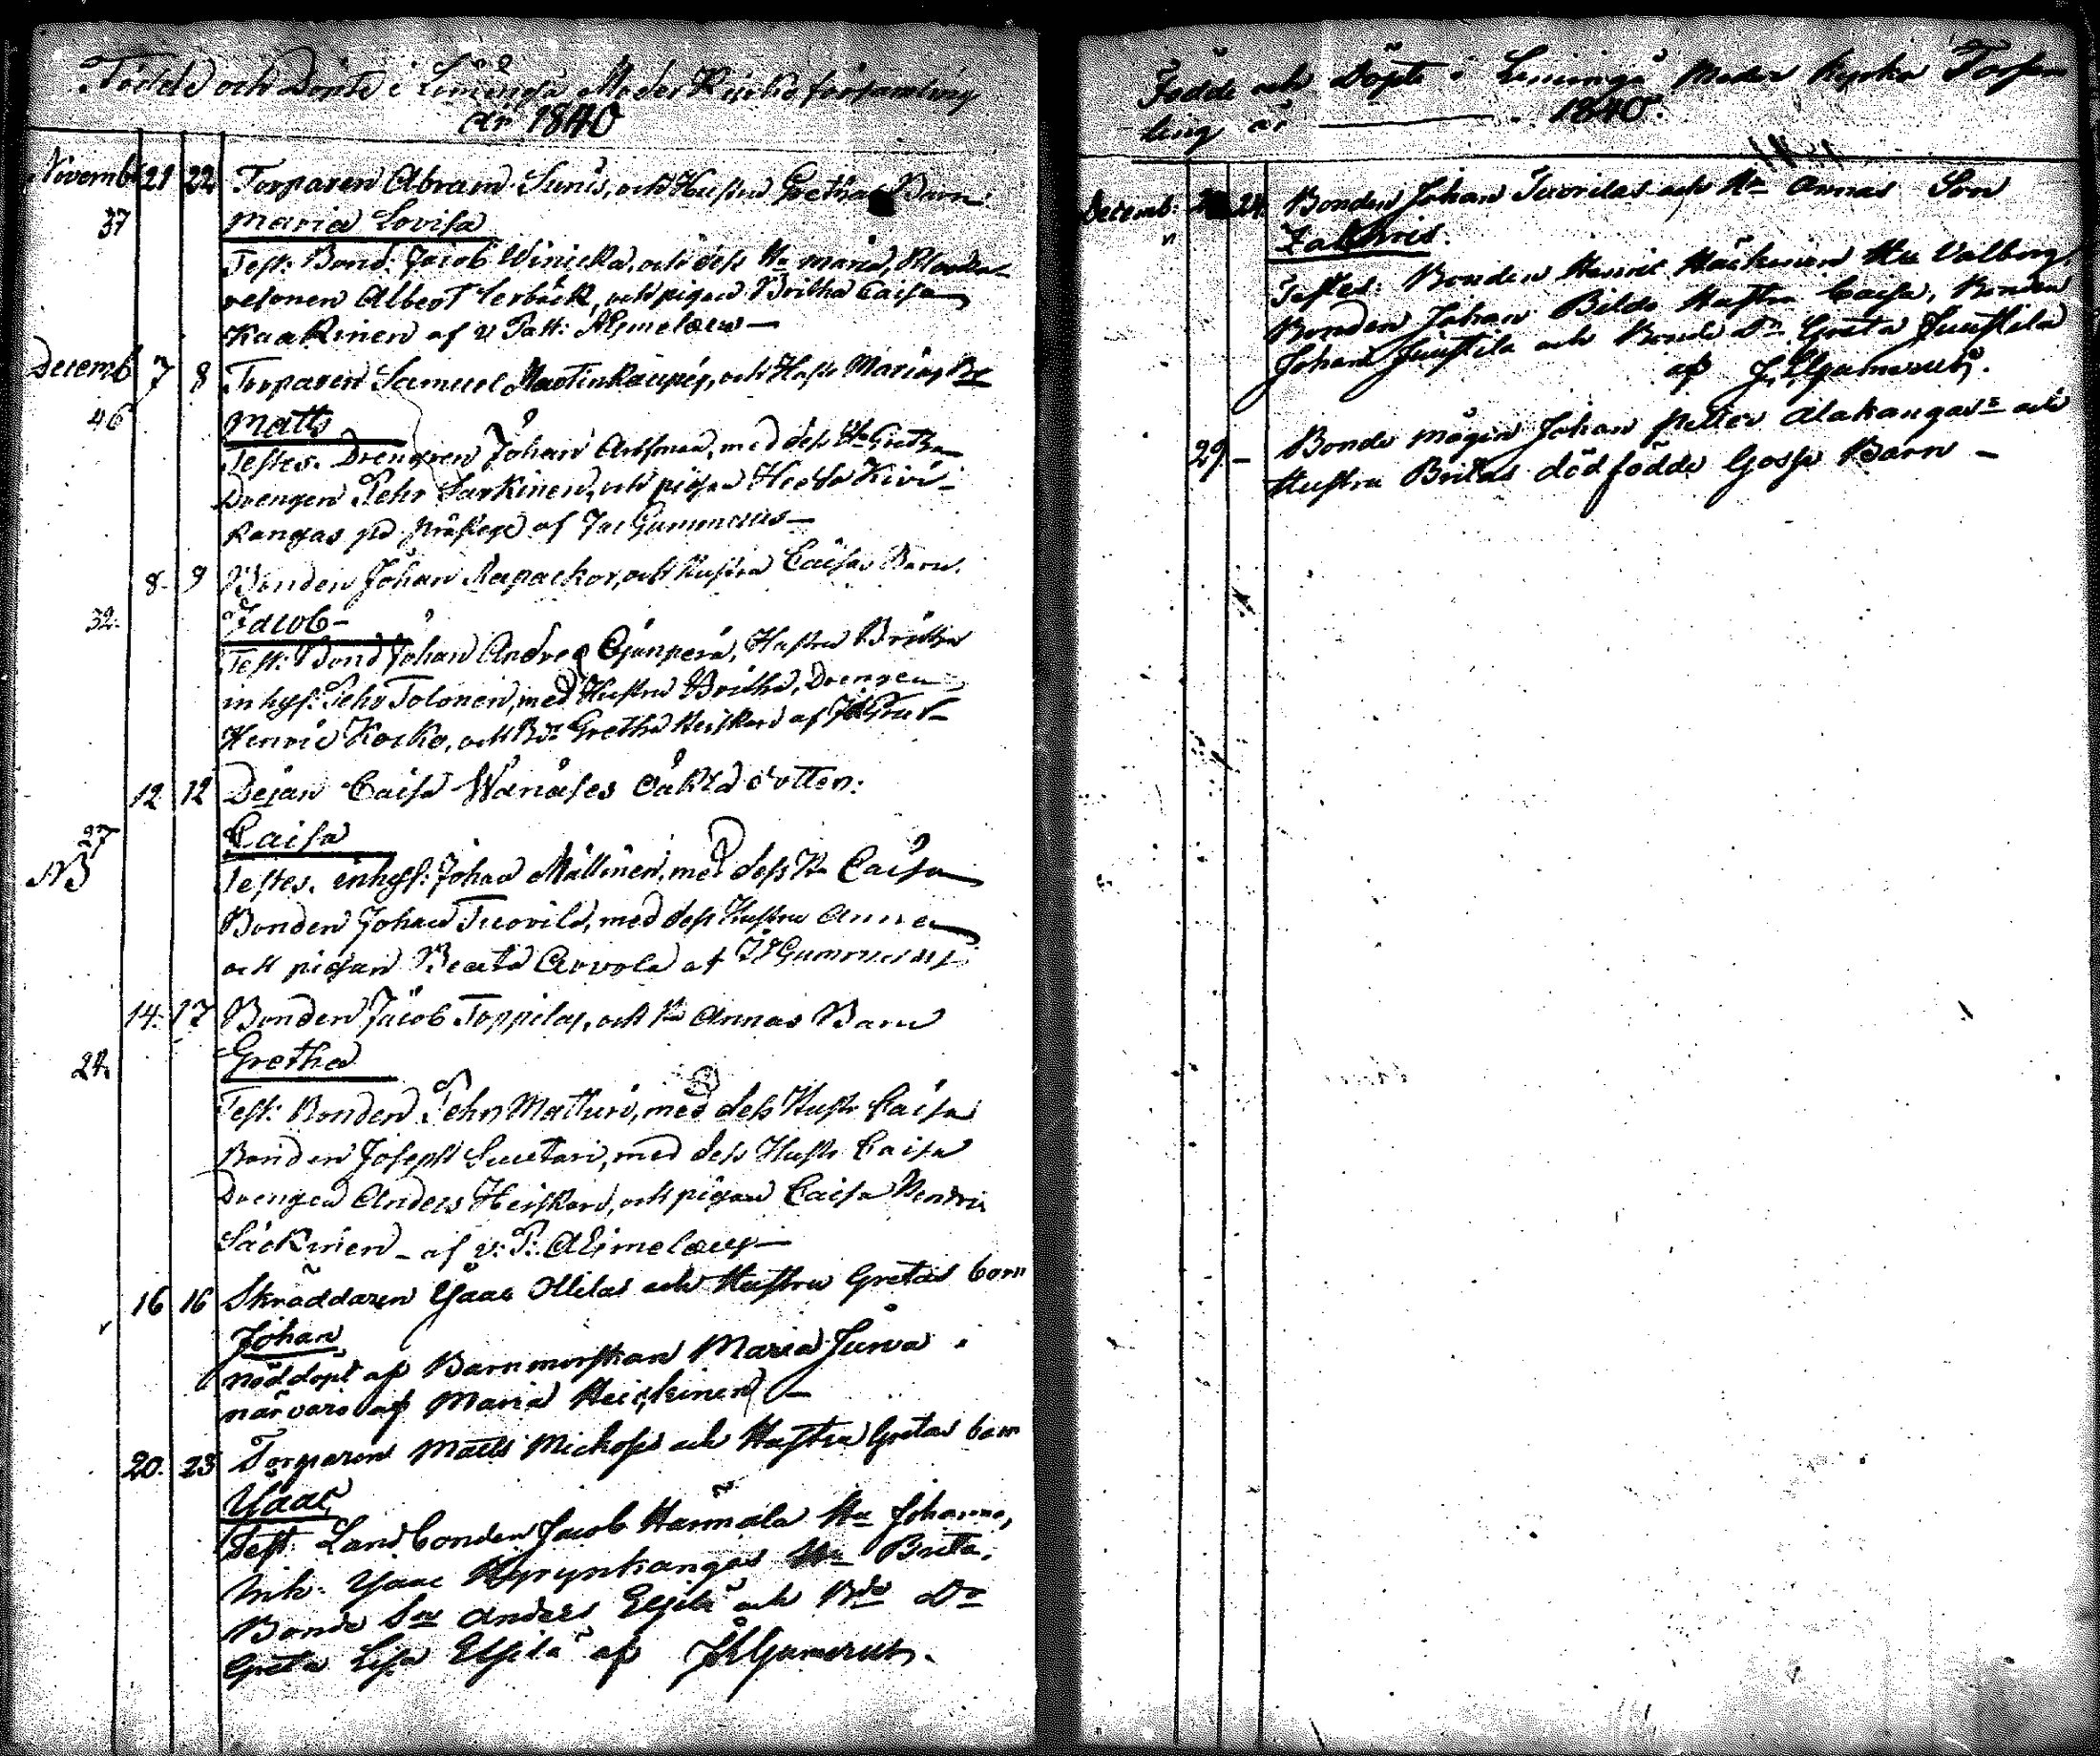 Födde och Döpte i Limingå Moder Kyrkio församling
år 1840
Novemb. 21 22 Torparen Abram Sunis, och Hustru Grethas Barn
37 Maria Lovisa
Test: Bond: Jacob Winicka, och dess Hu Maria,
Albert Lerbäck, och pigan Britha Caisa
Kaakinen af v Past: Alimelæus —
Decemb 7 8 Torparen Samuel Martinkaupis, och Hust Marias Bn
46 Matts
Testes. Drengen Johan, med dess Hu Gretha
Drengen Pehr Sarkinen, och pigan Hedda Kivi-
kangas på af Jac Gummerus —
8. 9 Bonden Johan Rapackos, och Hustru Caisas Barn.
32. Jacob —
Test: Bond Johan Andreæ Ojanperä, Hustru Britha
inhys: Pehr Tolonen, med Hustru Britha, Drengen
Henric Kocko, och Bd: Gretha Heiskari af
12 12 Dejan Caisa Wänäses oäkta dotter:
27 Caisa
NB Testes. inhys: Johan Mällinen, med dess Hu Caisa
Bonden Johan Tuovila, med dess Hustru Anna
och pigan Beata Arvola af Gummerus
14. 17 Bonden Jacob Toppilas, och Hu Annas Barn
24. Gretha
Test: Bonden Pehr Matturi, med dess Hustr Caisa
Bonden Joseph Suutari, med dess Hustr Caisa
Drengen Anders Heiskari, och pigan Caisa Hendric
Säckinen — af v: P: Alimelæus —
16 16 Skräddaren Isaac Ollilas och Hustru Gretas barn
Johan
nöddöpt af Barnmorskan Maria Jurva i
närvaro af Maria Heickinen —
20. 23 Torparen Matts Mickoss och Hustru Gretas barn
Isaac
Test. Landbonden Jacob Hannala Hu Johanna,
Inh. Isaac Kyrynkangas Hu Brita,
Bonde Sn Anders Elsilä och Bde Dr
Greta Lisa Elsilä af Gumerus.
Födde och Döpte i Limingå Moder Kyrko Försam
ling år ——— 1840.
Decemb: 24. Bonden Johan Tuovilas och Hu Annas Son
Zachris.
Testes: Bonden Henric Häckinen Hu Valborg,
Bonden Johan Bildo Hustru Caisa, Bonden
Johan Juustila och Bonde Dr Greta Juustila
af Gumerus.
29. — Bonde mågen Johan Petter Alakangas och
Hustru Britas dödfödde Gosse Barn —